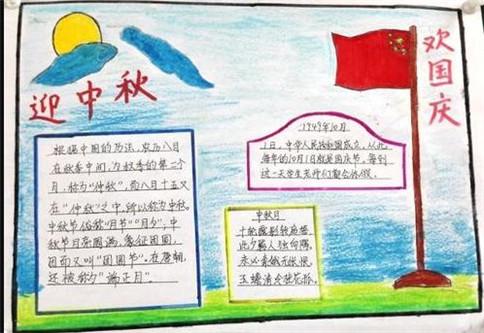 迎中秋
欢国庆
根据中国的历法,农历八月
在秋季中间,为秋季的第二个
月,称为"仲秋",而八月十五又
在"仲秋"之中,所以称为中秋。
中秋节俗称"月节""月夕",中
秋节月亮圆满,象征团圆,
因而又叫"团圆节"。在唐朝,
还被称为"端正月"
1949年10月
1日,中华人民共和国成立,从此
每年的10月1日就是国庆节,每到
这一天学生老师们都会休假。
中秋月
十轮霜影转庭梧,
此夕羁人独向隅。
未必素娥无怅恨,
玉蟾清冷桂花孤。